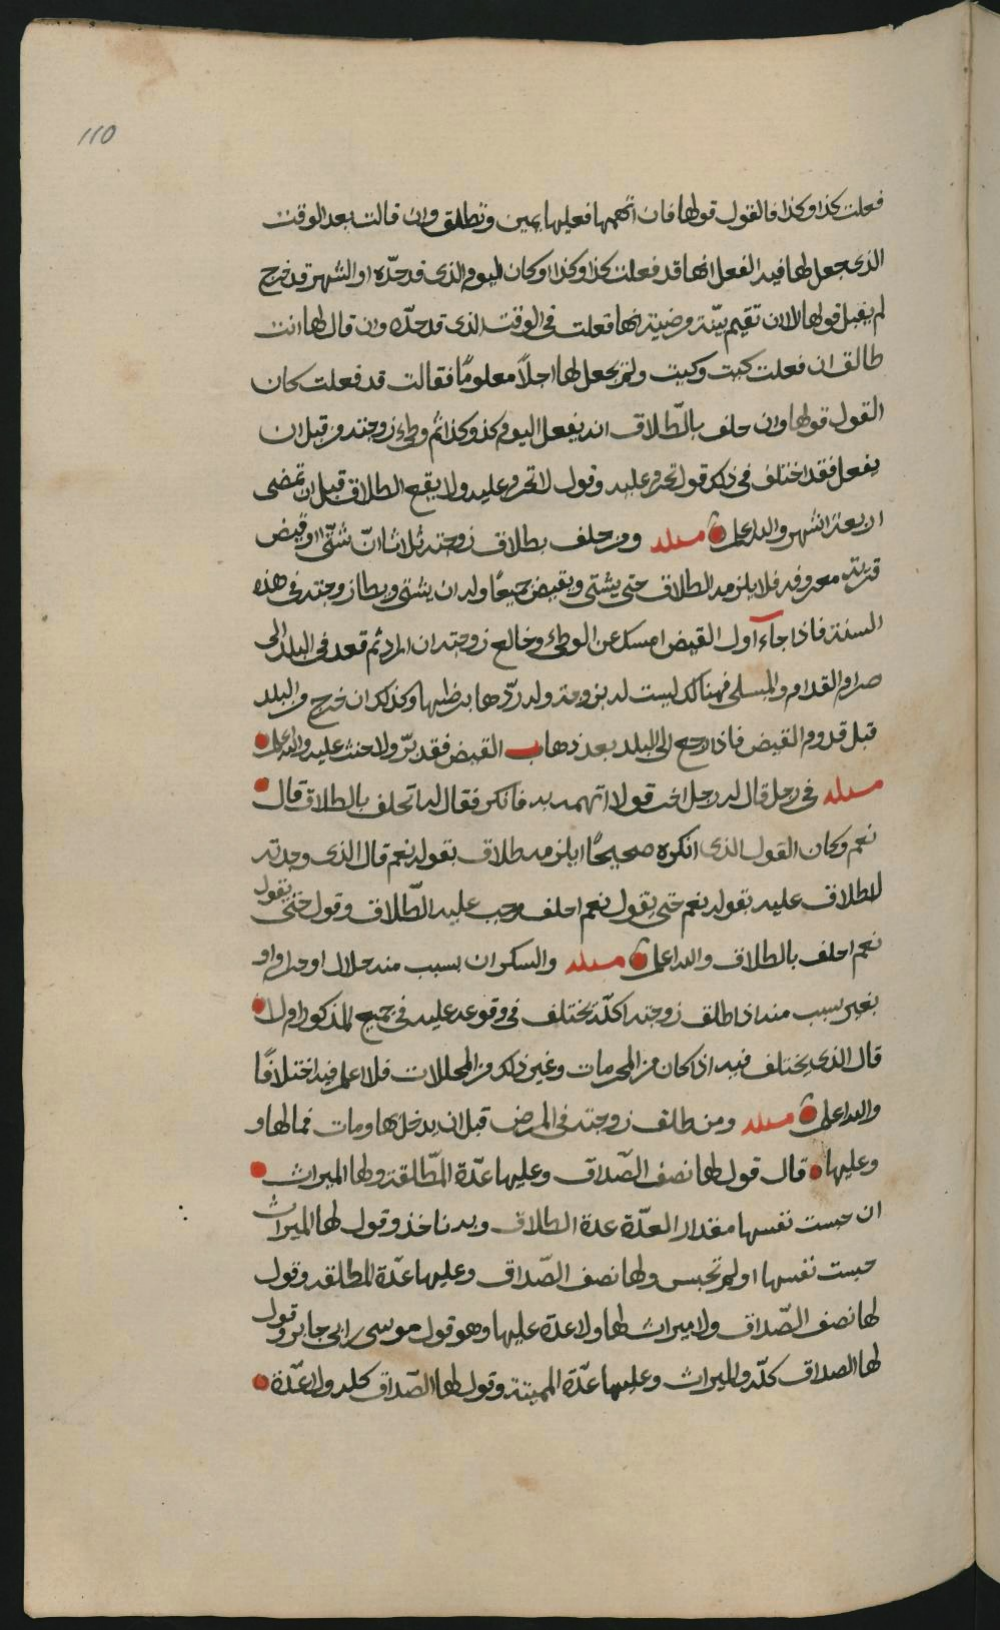 110
فعلت كذا وكذا فالقول قولها فان اتهمها فعليها يمين وتطلق وان قالت بعد الوقت
الذى جعل لها فيه الفعل انها قد فعلت كذا وكذا وكان اليوم الذى قد حدّه او الشهر قد خرج
لم يقبل قولها الا ان تقيم بيّنة مرضية انها فعلت فى الوقت الذى قد حدّه وان قال لها انت
طالق ان فعلت كيت وكيت ولم يجعل لها اجلاً معلومًا فقالت قد فعلت كان
القول قولها وان حلف بالطّلاق انه يفعل اليوم كذا وكذا ثم وطىء زوجته من قبل ان
يفعل فقد اختلف فى ذلك قول تحرم عليه وقول لا تحرم عليه ولا يقع الطلاق قبل ان تمضى
اربعة اشهر والله اعلم مسئلة ومن حلف بطلاق زوجته ثلاثا انّ شتّا او قيض
قرية معروفة فلا يلزمه الطلاق حتى يشتى ويقيض جميعًا وله ان يشتى ويطا زوجته فى هذه
السنة فاذا جآء اول القيض امسك عن الوطىء وخالع زوجته ان اراد ثم قعد فى البلد الى
صرام القدام والبسلى فهنالك ليست له بزوجة وله ردّها برضيها وكذلك ان خرج من البلد
قبل قدوم القيض فاذا رجع الى البلد بعد ذهاب القيض فقد برّ ولا حنث عليه والله اعلم
مسئلة فى رجل قال له رجل اخت قولا اتهمه به فانكر فقال له اتحلف بالطلاق قال
نعم وكان القول الذى انكره صحيحًا ايلزمه طلاق بقوله نعم قال الذى وجدته
لا طلاق عليه بقوله نعم حتى يقول نعم احلف وجب عليه الطّلاق وقول حتى يقول
نعم احلف بالطلاق والله اعلم مسئلة والسكران بسبب منه حلال او حرام او
بغير سبب منه اذا طلق زوجته اكلّه يختلف فى وقوعه عليه فى جميع المذكور ام لا
قال الذى يختلف فيه اذا كان من المحرمات وغير ذلك من المحللات فلا اعلم فيه اختلافًا
والله اعلم مسئلة ومن طلق زوجته فى المرض قبل ان يدخل بها ومات فما لها و
وعليها قال قول لها نصف الصّداق وعليها عدّة المطّلقة ولها الميراث
ان حبست نفسها مقدار العدّة عدة الطلاق وبه ناخذ وقول لها الميراث
حبست نفسها او لم تحبس ولها نصف الصّداق وعليها عدّة المطلقة وقول
لها نصف الصّداق ولا ميراث لها ولا عدة عليها وهو قول موسى بن ابى جابر وقول
لها الصداق كلّه والميراث وعليها عدّة المميتة وقول لها الصّداق كله ولا عدّة